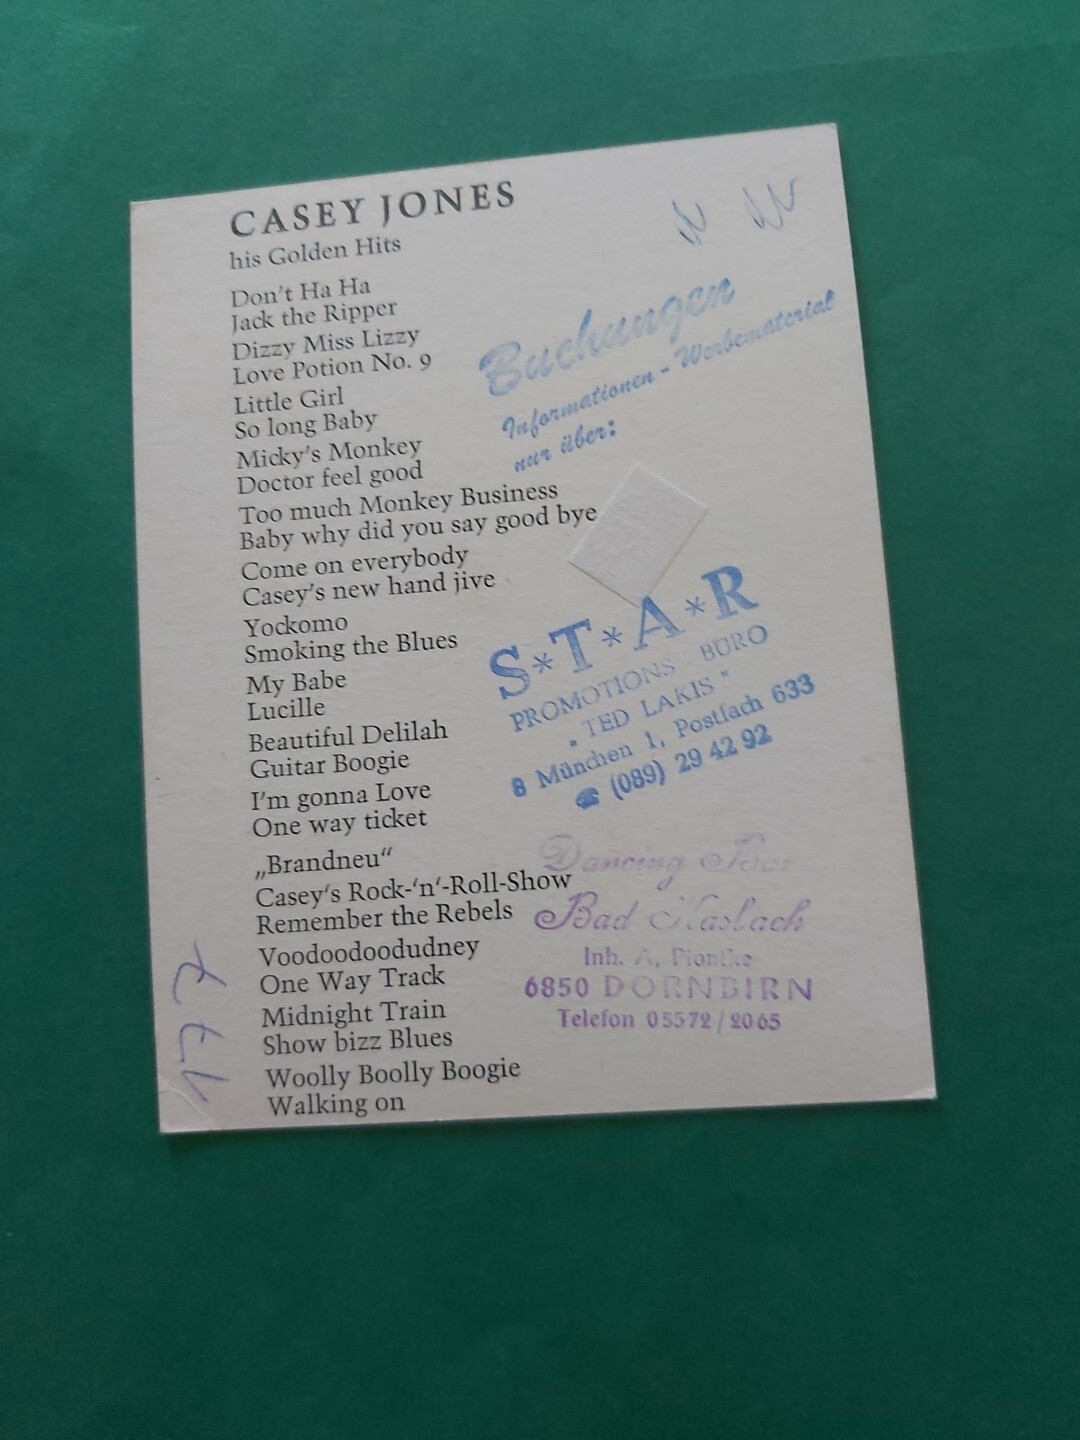 CASEY JONES
his Golden Hits
Don't Ha Ha
Jack the Ripper
Dizzy Miss Lizzy
Love Potion No. 9
Little Girl
So long Baby
Micky's Monkey
Doctor feel good
Too much Monkey Business
Baby why did you say good bye
Come on everybody
Casey's new hand jive
Yockomo
Smoking the Blues
My Babe
Lucille
Beautiful Delilah
Guitar Boogie
I'm gonna Love
One way ticket
„Brandneu“
Casey‘s Rock-‘n‘-Roll-Show
Remember the Rebels
Voodoodoodudney
One Way Track
Midnight Train
Show bizz Blues
Woolly Boolly Boogie
Walking on
Buchungen
Informationen - Werbematerial
nur über:
S*T*A*R
PROMOTIONS BÜRO
"TED LAKIS"
8 München 1, Postfach 633
☎ (089) 29 42 92
Dancing Bar
Bad Haslach
Inh. A. Piontke
6850 DORNBIRN
Telefon 05572/2065